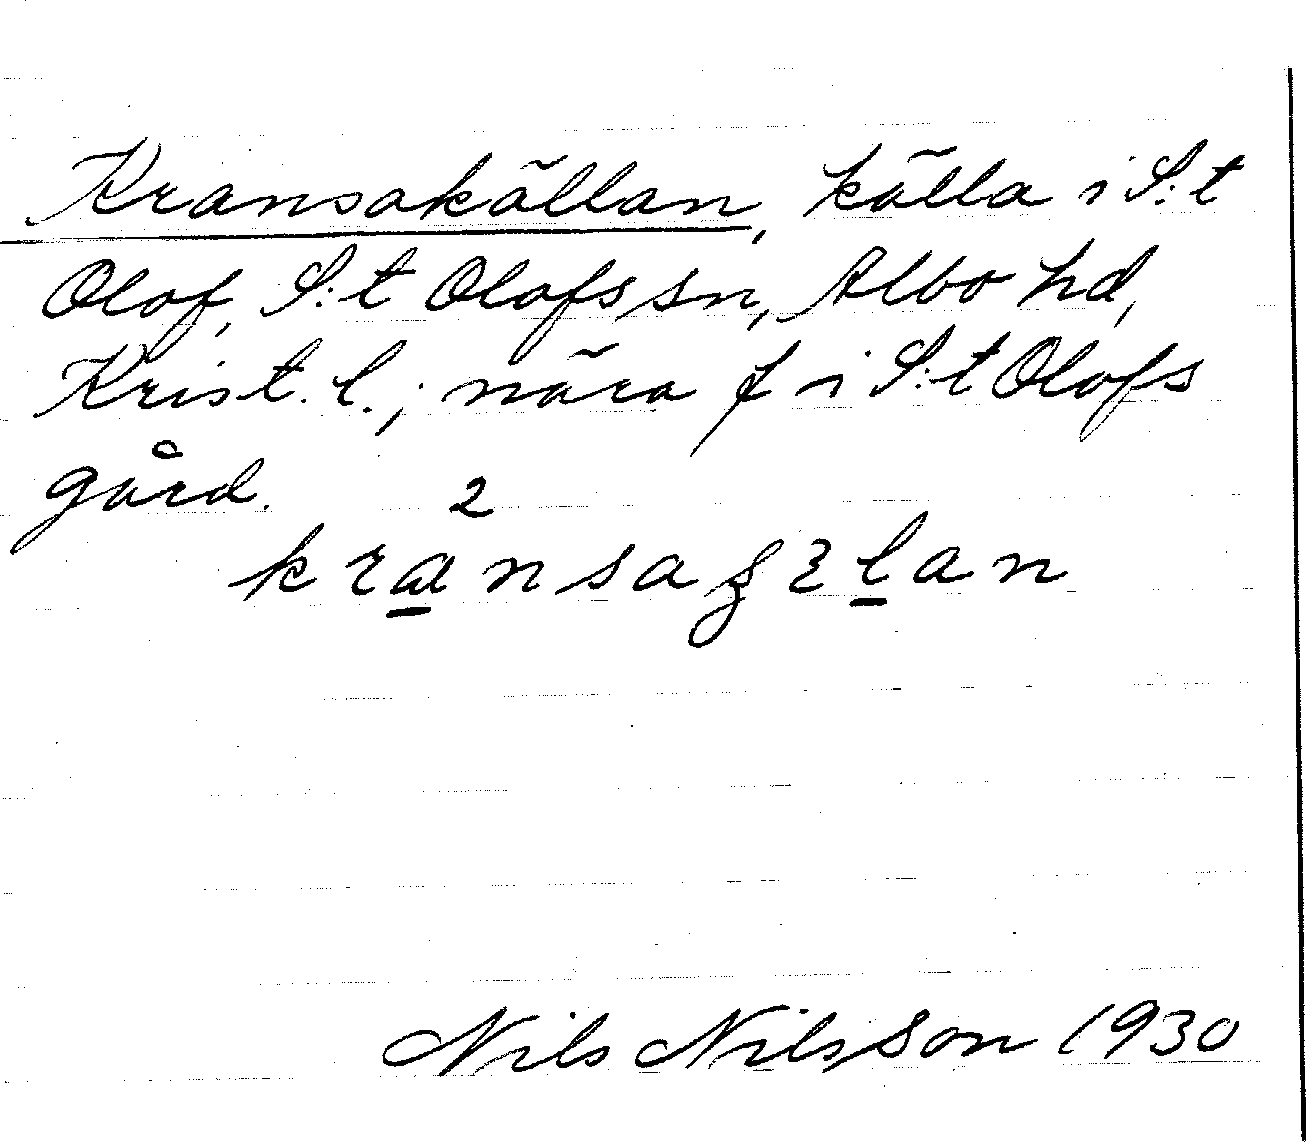 Kransakällan, källa i S:t
Olof, S:t Olofs sn, Albo hd,
Krist. l.; nära f i S:t Olofs
gård.
2
kransaʂɛlan
Nils Nilsson 1930